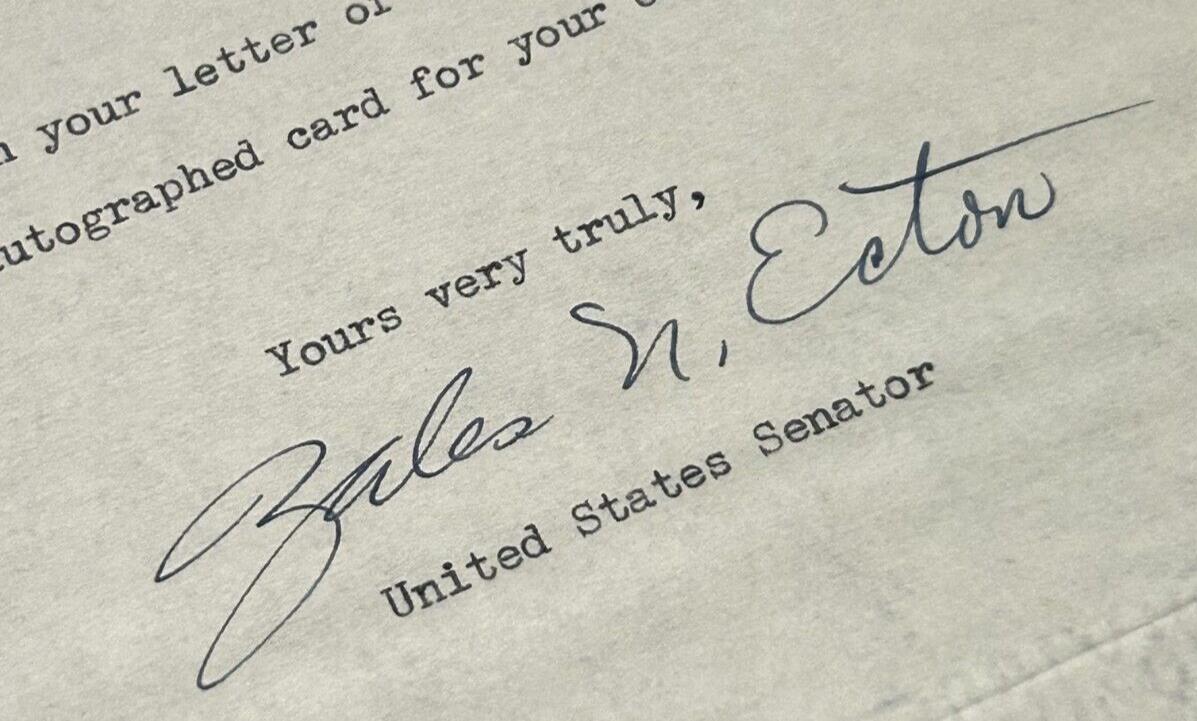 your letter of
autographed card for your
Yours very truly,
Zales N. Ecton
United States Senator